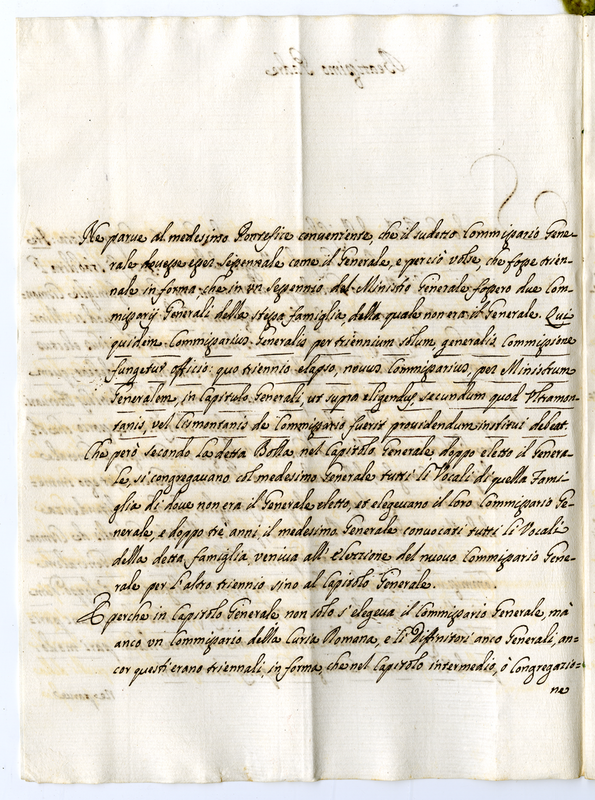 Ne parue al medesimo Pontefice conueniente, che il sudetto Commissario Gene-
rale douesse esser Sessennale come il Generale, e perciò volse, che fosse trien-
nale in forma che in vn sessennio del Ministro Generale fossero due Com-
missarij Generali della stessa famiglia, della quale non era il Generale. Qui
quidem Commissarius Generalis per triennium solum generalis Commissione
fungetur officio: quo triennio elapso, nouus Commissarius, per Ministrum
Generalem, in Capitulo Generali, ut supra eligendus, secundum quod Vltramon-
tanis, vel Cismontanis de Commissario fuerit prouidendum institui debeat.
Che però secondo la detta Bolla nel Capitolo Generale doppo eletto il Genera-
le, si congregauano col medesimo Generale tutti li Vocali di quella Fami-
glia di doue non era il Generale eletto, et elegeuano il loro Commissario Ge-
nerale, e doppo trè anni il medesimo Generale conuocati tutti li Vocali
della detta famiglia, veniua all'elezzione del nuouo Commissario Gene-
rale per l'altro triennio sino al Capitolo Generale.
E perche in Capitolo Generale non solo s'elegeua il Commissario Generale, mà
anco vn Commissario della Curia Romana, e li Diffinitori anco Generali, an-
cor questi erano triennali, in forma, che nel Capitolo intermedio, ò Congregazio-
ne